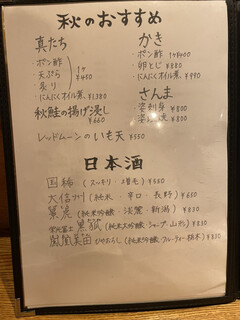 秋のおすすめ
真たち
・ポン酢
・天ぷら
・炙り
1ヶ ¥450
・にんにくオイル煮 ¥1,380
秋鮭の揚げ浸し
¥660
レッドムーンのいも天 ¥550
かき
・ポン酢 1ヶ¥400
・卵とじ ¥880
・にんにくオイル煮 ¥980
さんま
姿刺身 ¥800
¥800
日本酒
国稀 (スッキリ・増毛) ¥550
大信州 (純米・辛口・長野) ¥650
(純米吟醸・淡麗・新潟) ¥830
栄光冨士 (純米大吟醸・シャープ・山形) ¥830
(純米吟醸・フルーティー・栃木) ¥830